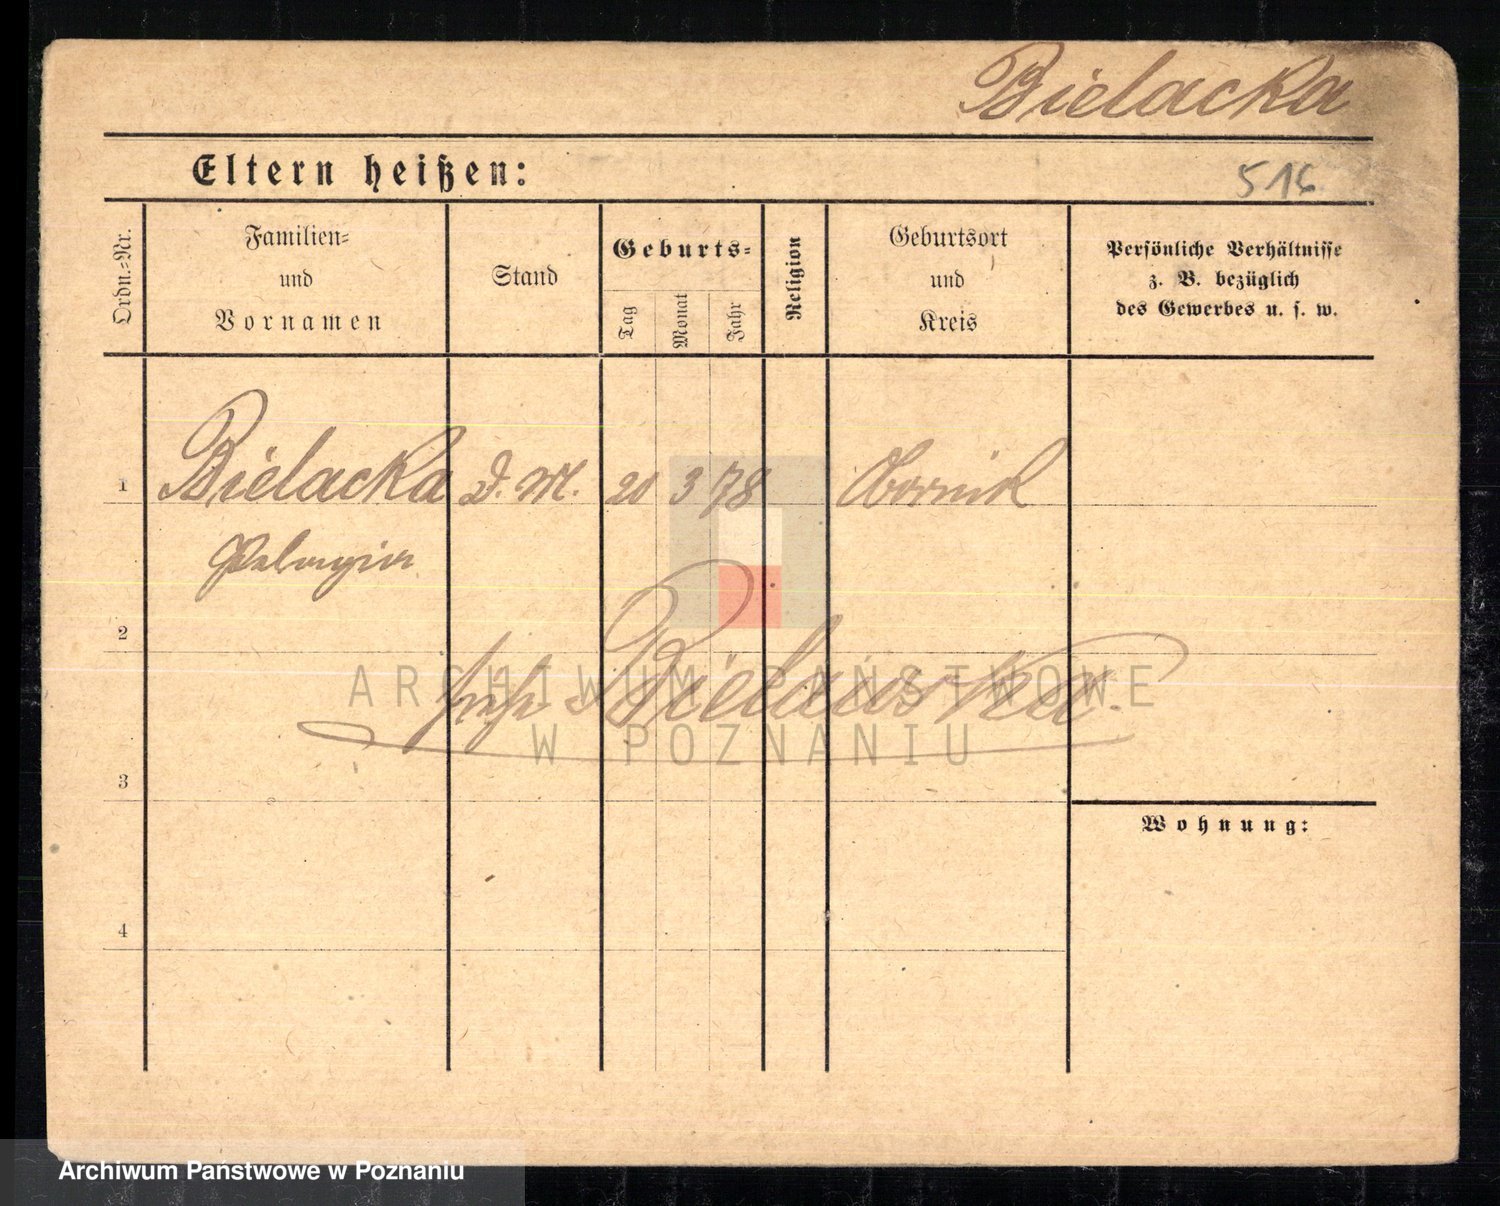 Bielacka
Eltern heißen:
516
Ordn.=Nr.
Familien=
und
Vornamen
Stand
Geburts=
Tag
Monat
Jahr
Religion
Geburtsort
und
Kreis
Persönliche Verhältnisse
z. B. bezüglich
des Gewerbes u. s. w.
1
Bielacka D. M. 20 3 78 Obornik
Pelagia
2
ARCHIWUM PAŃSTWOWE
siehe Bielawska
W POZNANIU
3
Wohnung:
4
Archiwum Państwowe w Poznaniu